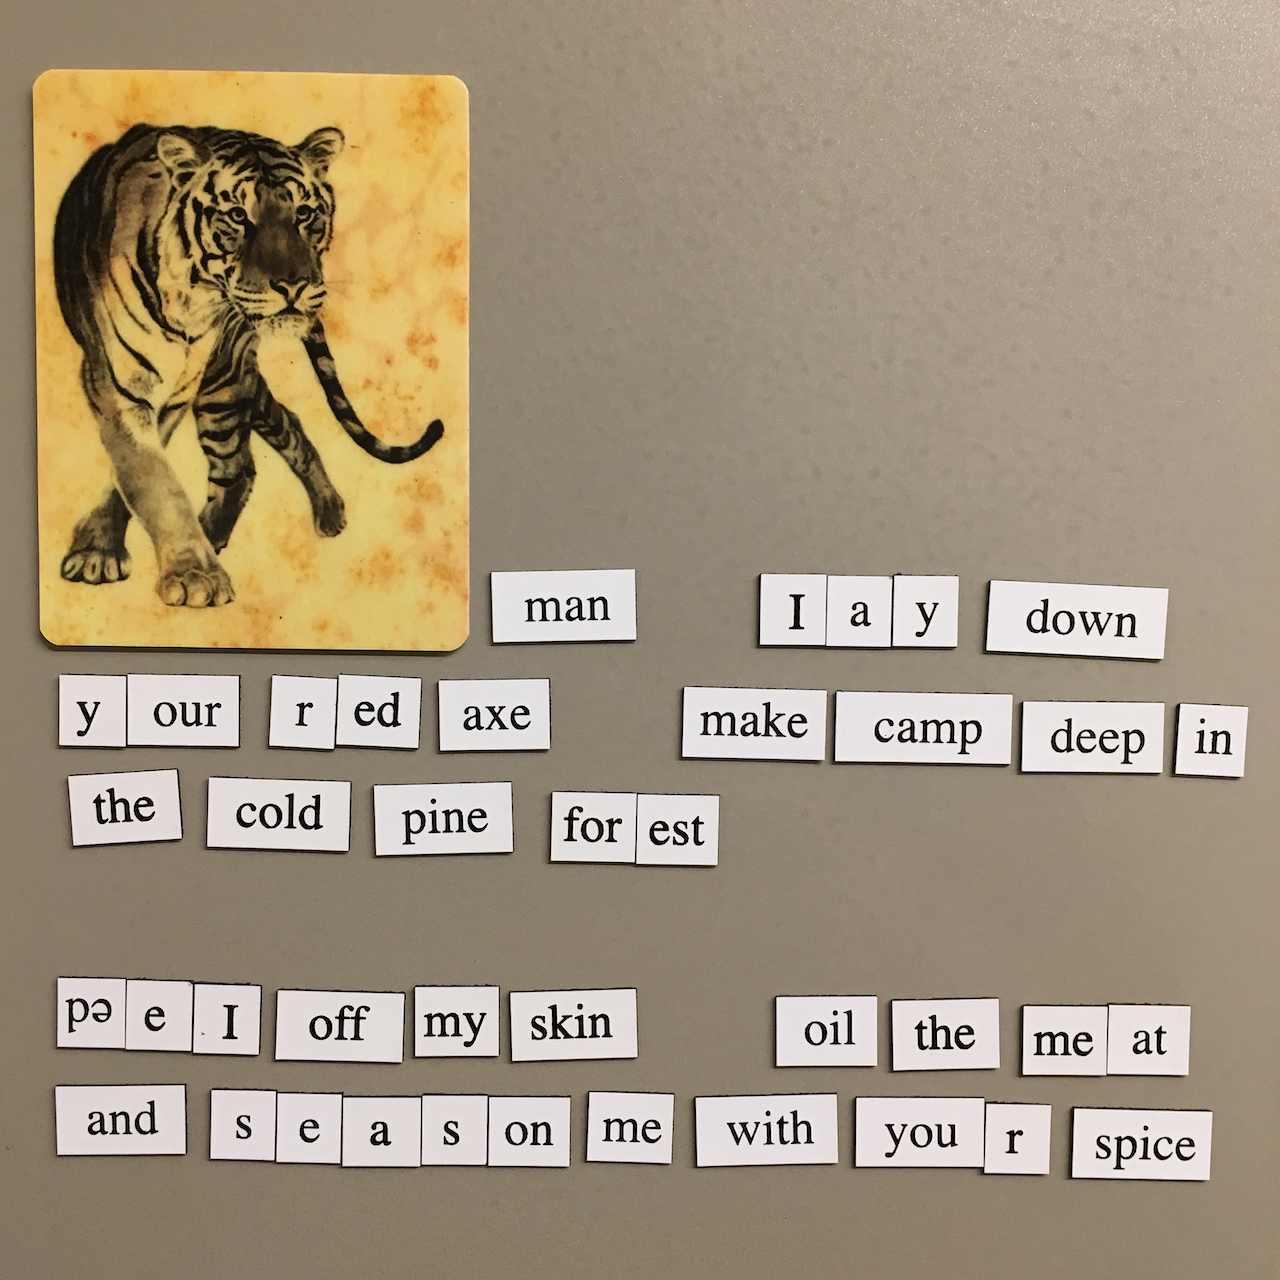 man Iay down
your red axe make camp deep in
the cold pine forest
pəeI off my skin oil the meat
and season me with your spice